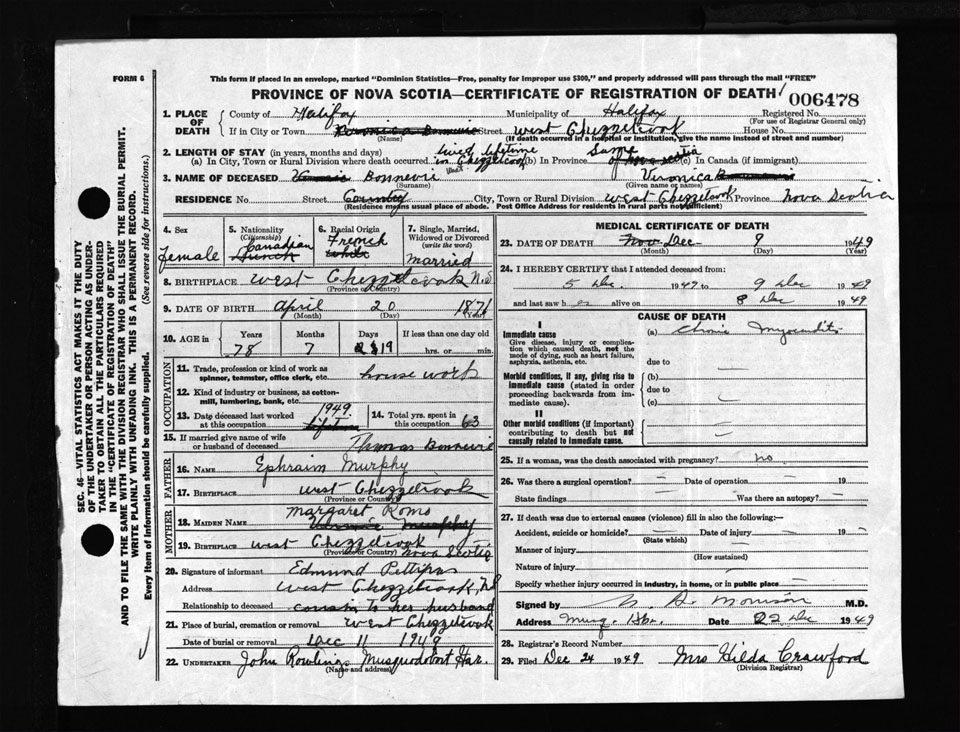 FORM 6
This form if placed in an envelope, marked "Dominion Statistics—Free, penalty for improper use $300," and properly addressed will pass through the mail "FREE"
PROVINCE OF NOVA SCOTIA—CERTIFICATE OF REGISTRATION OF DEATH
006478
1. PLACE OF DEATH
County of Halifax Municipality of Halifax Registered No.
(For use of Registrar General only)
If in City or Town Veronica Bonnevie Street West Chezzetcook House No.
(Name) (If death occurred in a hospital or institution, give the name instead of street and number)
2. LENGTH OF STAY (in years, months and days) lived lifetime Same
(a) In City, Town or Rural Division where death occurred in West Chezzetcook (b) In Province of Nova Scotia (c) In Canada (if immigrant)
3. NAME OF DECEASED Bonnevie Veronica
(Surname) (Given name or names)
RESIDENCE No. Street Country City, Town or Rural Division West Chezzetcook Province Nova Scotia
(Residence means usual place of abode. Post Office Address for residents in rural parts not sufficient)
4. Sex
female
5. Nationality (Citizenship)
Canadian
French
6. Racial Origin
French
white
7. Single, Married, Widowed or Divorced (write the word)
married
8. BIRTHPLACE West Chezzetcook N.S
(Province or Country)
9. DATE OF BIRTH April 20 1871
(Month) (Day) (Year)
10. AGE in Years Months Days If less than one day old
78 7 19 hrs. or min.
OCCUPATION
11. Trade, profession or kind of work as spinner, teamster, office clerk, etc. house work
12. Kind of industry or business, as cotton-mill, lumbering, bank, etc.
13. Date deceased last worked at this occupation 1949 lifetime
14. Total yrs. spent in this occupation 63
15. If married give name of wife or husband of deceased Thomas Bonnevie
FATHER
16. NAME Ephraim Murphy
17. BIRTHPLACE West Chezzetcook
(Province or Country)
MOTHER
18. MAIDEN NAME Margaret Roms
Murphy
19. BIRTHPLACE West Chezzetcook Nova Scotia
(Province or Country)
20. Signature of informant Edmund Pettipas
Address West Chezzetcook, N.S
Relationship to deceased cousin to her husband
21. Place of burial, cremation or removal West Chezzetcook
Date of burial or removal Dec 11 1949
22. UNDERTAKER John Rowlings Musquodobit Har.
(Name and address)
MEDICAL CERTIFICATE OF DEATH
23. DATE OF DEATH Nov Dec 9 1949
(Month) (Day) (Year)
24. I HEREBY CERTIFY that I attended deceased from:
5 Dec. 1947 to 9 Dec 1949
and last saw h er alive on 8 Dec 1949
CAUSE OF DEATH
I
Immediate cause
Give disease, injury or complication which caused death, not the mode of dying, such as heart failure, asphyxia, asthenia, etc.
(a) Chronic Myocarditis
due to
Morbid conditions, if any, giving rise to immediate cause (stated in order proceeding backwards from immediate cause).
(b)
due to
(c)
II
Other morbid conditions (if important) contributing to death but not causally related to immediate cause.
25. If a woman, was the death associated with pregnancy? no
26. Was there a surgical operation? — Date of operation — 19
State findings — Was there an autopsy? —
27. If death was due to external causes (violence) fill in also the following:—
Accident, suicide or homicide? — Date of injury — 19
(State which)
Manner of injury —
(How sustained)
Nature of injury —
Specify whether injury occurred in industry, in home, or in public place —
Signed by Morrison M.D.
Address Musq. Hbr. Date 22 Dec 1949
28. Registrar's Record No.
29. Filed Dec 24 1949 Mrs Hilda Crawford
(Division Registrar)
SEC. 46—VITAL STATISTICS ACT MAKES IT THE DUTY
OF THE UNDERTAKER OR PERSON ACTING AS UNDER-
TAKER TO OBTAIN ALL THE PARTICULARS REQUIRED
IN THE "CERTIFICATE OF REGISTRATION OF DEATH"
AND TO FILE THE SAME WITH THE DIVISION REGISTRAR WHO SHALL ISSUE THE BURIAL PERMIT.
WRITE PLAINLY WITH UNFADING INK. THIS IS A PERMANENT RECORD.
Every item of information should be carefully supplied. (See reverse side for instructions.)